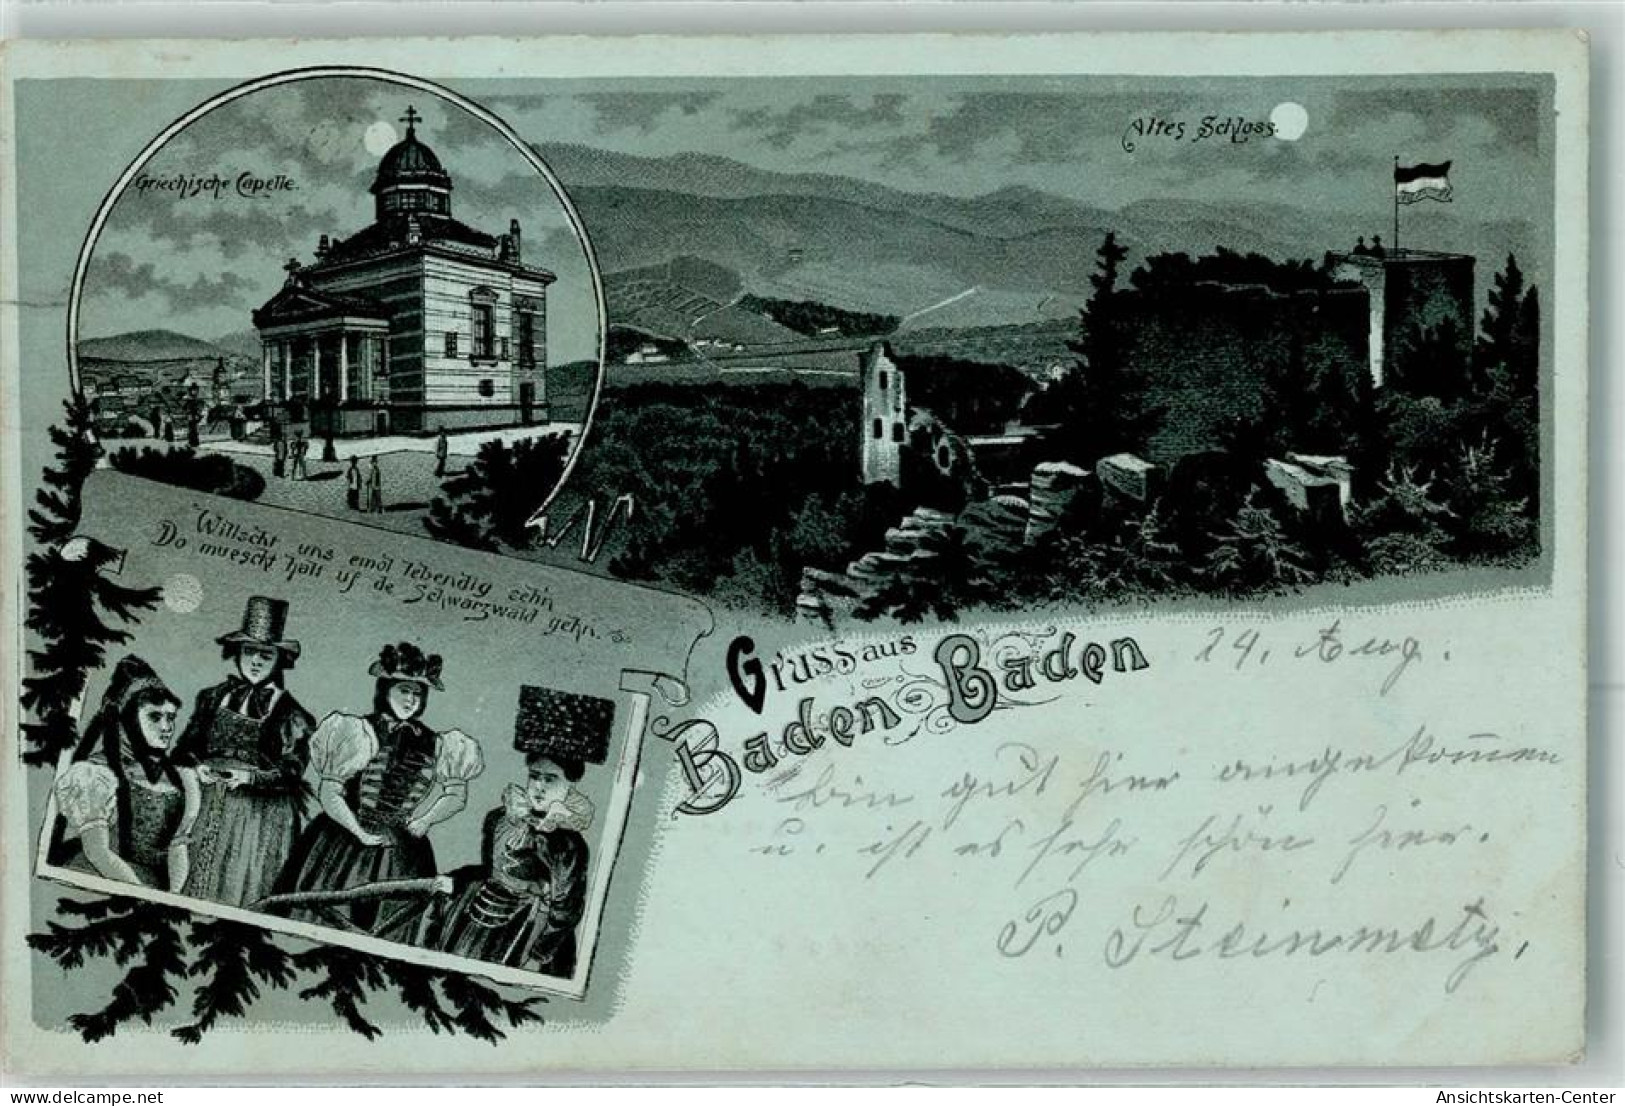 Griechische Capelle.
Altes Schloss.
Willscht uns emol lebendig sehn
Do muescht halt uf de Schwarzwald gehn.
Gruss aus
Baden-Baden
24. Aug.
Bin gut hier angekom̅en
u. ist es sehr schön hier.
P. Steinmetz,
Ansichtskarten-Center